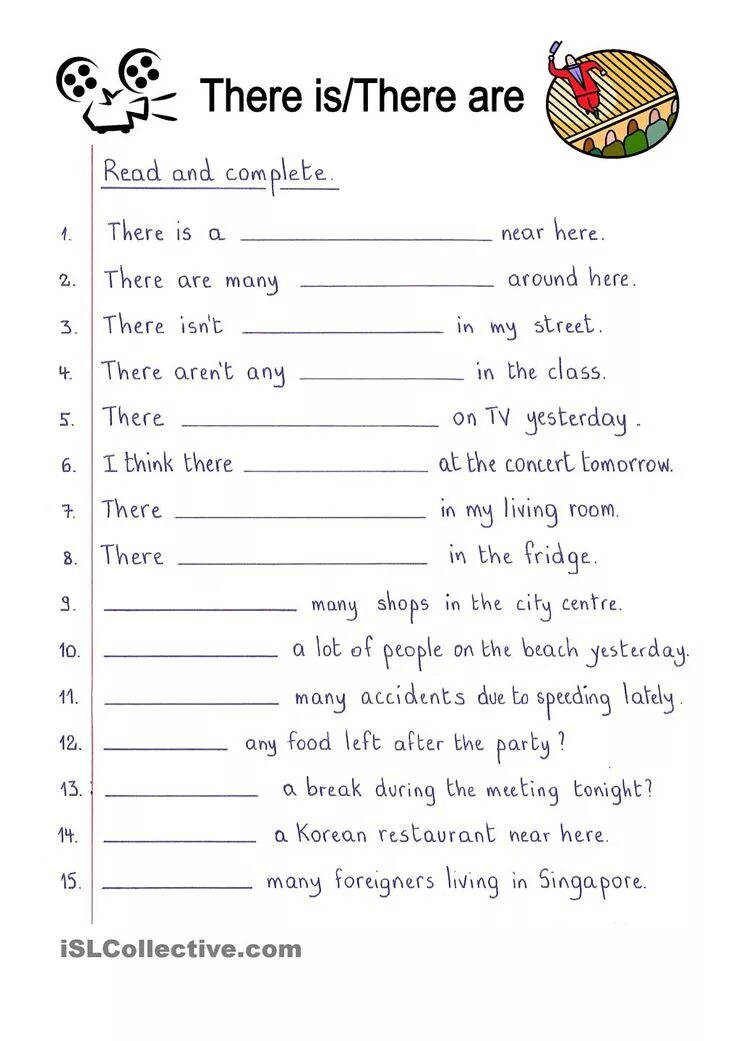 There is/There are
Read and complete.
1. There is a ____________ near here.
2. There are many ____________ around here.
3. There isn't ____________ in my street.
4. There aren't any ____________ in the class.
5. There ____________ on TV yesterday.
6. I think there ____________ at the concert tomorrow.
7. There ____________ in my living room.
8. There ____________ in the fridge.
9. ____________ many shops in the city centre.
10. ____________ a lot of people on the beach yesterday.
11. ____________ many accidents due to speeding lately.
12. ____________ any food left after the party?
13. ____________ a break during the meeting tonight?
14. ____________ a Korean restaurant near here.
15. ____________ many foreigners living in Singapore.
iSLCollective.com